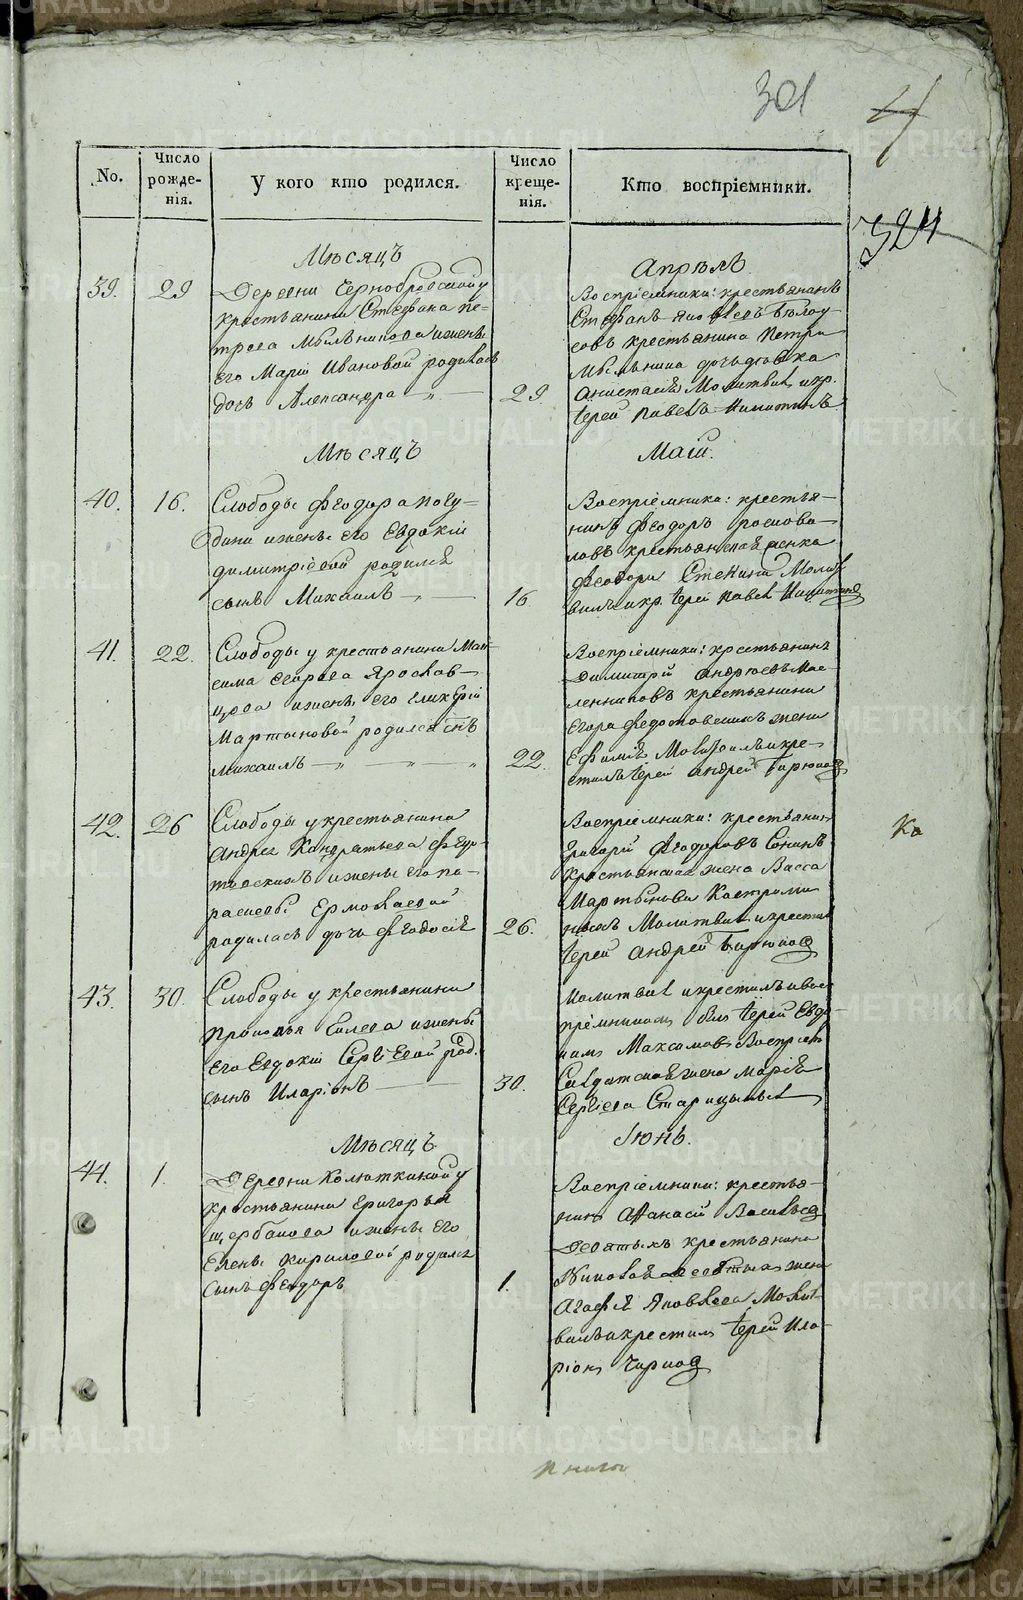 301
4
324
No.
Число рожденія.
У кого кто родился.
Число крещенія.
Кто воспріемники.
Мѣсяцъ
Апрѣль
39. 29
Деревни Чернобровской у
крестьянина Стефана Пе-
трова Мѣльникова и жены
его Маріи Ивановой родилась
дочь Александра
29.
Воспріемники: крестьянинъ
Стефанъ Яковлевъ Бѣлоу-
совъ крестьянина Петра
Мѣльника дочь дѣвка
Анистасія Молитвил и кр.
Іерей Павелъ Никитинъ
Мѣсяцъ
Маій.
40. 16.
Слободы Феодора
жены его Евдокіи
Димитріевой родился
сынъ Михаилъ
16
Воспріемники: крестья-
нинъ Феодоръ
крестьянская женка
Феодора Молит
вилъ и кр. Іерей Павел Никитинъ
41. 22.
Слободы у крестьянина Мак-
сима Егорова Ярослав-
цова и жены его Гликеріи
Мартыновой родился сынъ
Михаилъ
22.
Воспріемники: крестьянинъ
Димитрій Андреевъ Мас-
ленниковъ крестьянина
Егора Федотовскихъ жена
Ефимія Молитвилъ и кре-
стилъ Іерей Андрей Бирюков
42. 26
Слободы у крестьянина
Андрея Кондратьева Федо-
товскихъ и жены его Па-
расковы Ермолаевой
родилась дочь Феодосія
26.
Воспріемники: крестьянин
Григорій Феодоровъ Сонинъ
крестьянская жена Васса
Мартынова Костроми
ныхъ Молитвил и крестил
Іерей Андрей Бирюков
Ка
43. 30.
Слободы у крестьянина
Прокопья Силева и жены
его Евдокіи Сергіевой род.
сынъ Иларіонъ
30.
Молитвил и крестилъ и вос
пріемником был Іерей Евдо
ким Максимов Воспріем
Солдатская жена Марія
Сергіева Старицына
Мѣсяцъ
Іюнь.
44. 1.
Деревни Колюткиной у
крестьянина Григорья
Щербакова и жены его
Елены Кириловой родился
сынъ Феодоръ
1.
Воспріемники: крестья-
нинъ Афанасій Васильев
Девятыхъ крестьянина
Николая Девятыхъ жена
Агафія Яковлева Молит-
вилъ и крестилъ Іерей Ила-
ріонъ Чирков